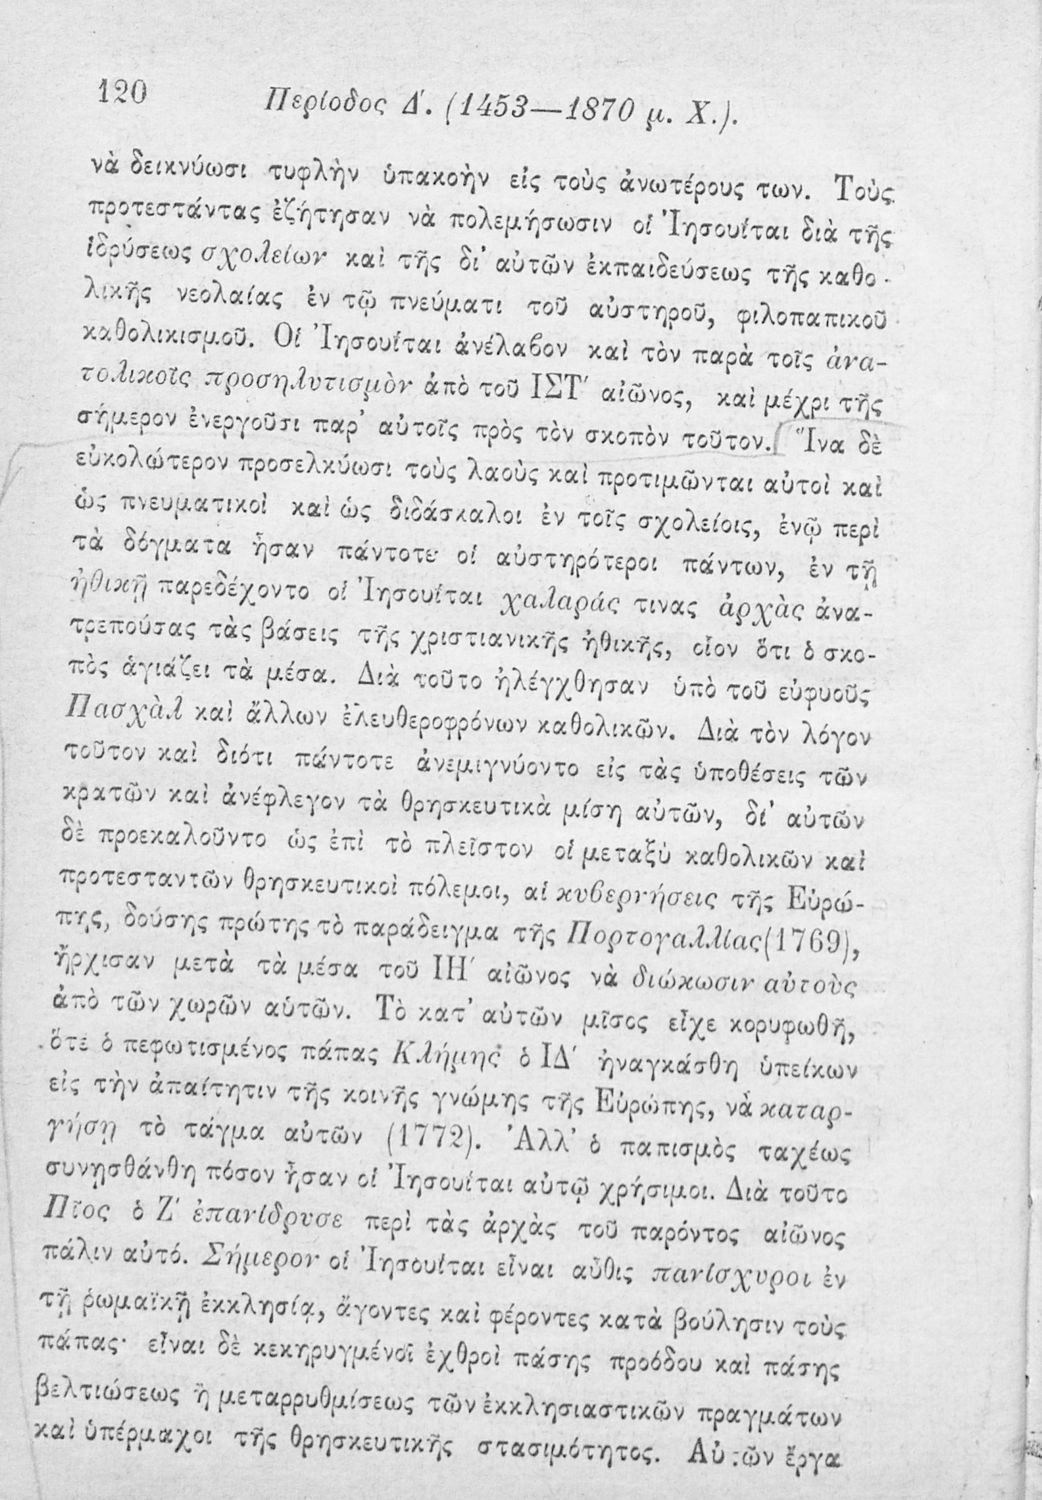 120 Περίοδος Δ΄. (1453—1870 μ. Χ.).
νὰ δεικνύωσι τυφλὴν ὑπακοὴν εἰς τοὺς ἀνωτέρους των. Τοὺς
προτεστάντας ἐζήτησαν νὰ πολεμήσωσιν οἱ Ἰησουῖται διὰ τῆς
ἱδρύσεως σχολείων καὶ τῆς δι’ αὐτῶν ἐκπαιδεύσεως τῆς καθο-
λικῆς νεολαίας ἐν τῷ πνεύματι τοῦ αὐστηροῦ, φιλοπαπικοῦ
καθολικισμοῦ. Οἱ Ἰησουῖται ἀνέλαβον καὶ τὸν παρὰ τοῖς ἀνα-
τολικοῖς προσηλυτισμὸν ἀπὸ τοῦ ΙΣΤ΄ αἰῶνος, καὶ μέχρι τῆς
σήμερον ἐνεργοῦσι παρ’ αὐτοῖς πρὸς τὸν σκοπὸν τοῦτον. Ἵνα δὲ
εὐκολώτερον προσελκύωσι τοὺς λαοὺς καὶ προτιμῶνται αὐτοὶ καὶ
ὡς πνευματικοὶ καὶ ὡς διδάσκαλοι ἐν τοῖς σχολείοις, ἐνῷ περὶ
τὰ δόγματα ἦσαν πάντοτε οἱ αὐστηρότεροι πάντων, ἐν τῇ
ἠθικῇ παρεδέχοντο οἱ Ἰησουῖται χαλαράς τινας ἀρχὰς ἀνα-
τρεπούσας τὰς βάσεις τῆς χριστιανικῆς ἠθικῆς, οἷον ὅτι ὁ σκο-
πὸς ἁγιάζει τὰ μέσα. Διὰ τοῦτο ἠλέγχθησαν ὑπὸ τοῦ εὐφυοῦς
Πασχὰλ καὶ ἄλλων ἐλευθεροφρόνων καθολικῶν. Διὰ τὸν λόγον
τοῦτον καὶ διότι πάντοτε ἀνεμιγνύοντο εἰς τὰς ὑποθέσεις τῶν
κρατῶν καὶ ἀνέφλεγον τὰ θρησκευτικὰ μίση αὐτῶν, δι’ αὐτῶν
δὲ προεκαλοῦντο ὡς ἐπὶ τὸ πλεῖστον οἱ μεταξὺ καθολικῶν καὶ
προτεσταντῶν θρησκευτικοὶ πόλεμοι, αἱ κυβερνήσεις τῆς Εὐρώ-
πης, δούσης πρώτης τὸ παράδειγμα τῆς Πορτογαλλίας (1769),
ἤρχισαν μετὰ τὰ μέσα τοῦ ΙΗ΄ αἰῶνος νὰ διώκωσιν αὐτοὺς
ἀπὸ τῶν χωρῶν αὑτῶν. Τὸ κατ’ αὐτῶν μῖσος εἶχε κορυφωθῆ,
ὅτε ὁ πεφωτισμένος πάπας Κλήμης ὁ ΙΔ΄ ἠναγκάσθη ὑπείκων
εἰς τὴν ἀπαίτητιν τῆς κοινῆς γνώμης τῆς Εὐρώπης, νὰ καταρ-
γήσῃ τὸ τάγμα αὐτῶν (1772). Ἀλλ’ ὁ παπισμὸς ταχέως
συνῃσθάνθη πόσον ἦσαν οἱ Ἰησουῖται αὐτῷ χρήσιμοι. Διὰ τοῦτο
Πῖος ὁ Ζ΄ ἐπανίδρυσε περὶ τὰς ἀρχὰς τοῦ παρόντος αἰῶνος
πάλιν αὐτό. Σήμερον οἱ Ἰησουῖται εἶναι αὖθις πανίσχυροι ἐν
τῇ ῥωμαϊκῇ ἐκκλησίᾳ, ἄγοντες καὶ φέροντες κατὰ βούλησιν τοὺς
πάπας· εἶναι δὲ κεκηρυγμένοι ἐχθροὶ πάσης προόδου καὶ πάσης
βελτιώσεως ἢ μεταρρυθμίσεως τῶν ἐκκλησιαστικῶν πραγμάτων
καὶ ὑπέρμαχοι τῆς θρησκευτικῆς στασιμότητος. Αὐτῶν ἔργα